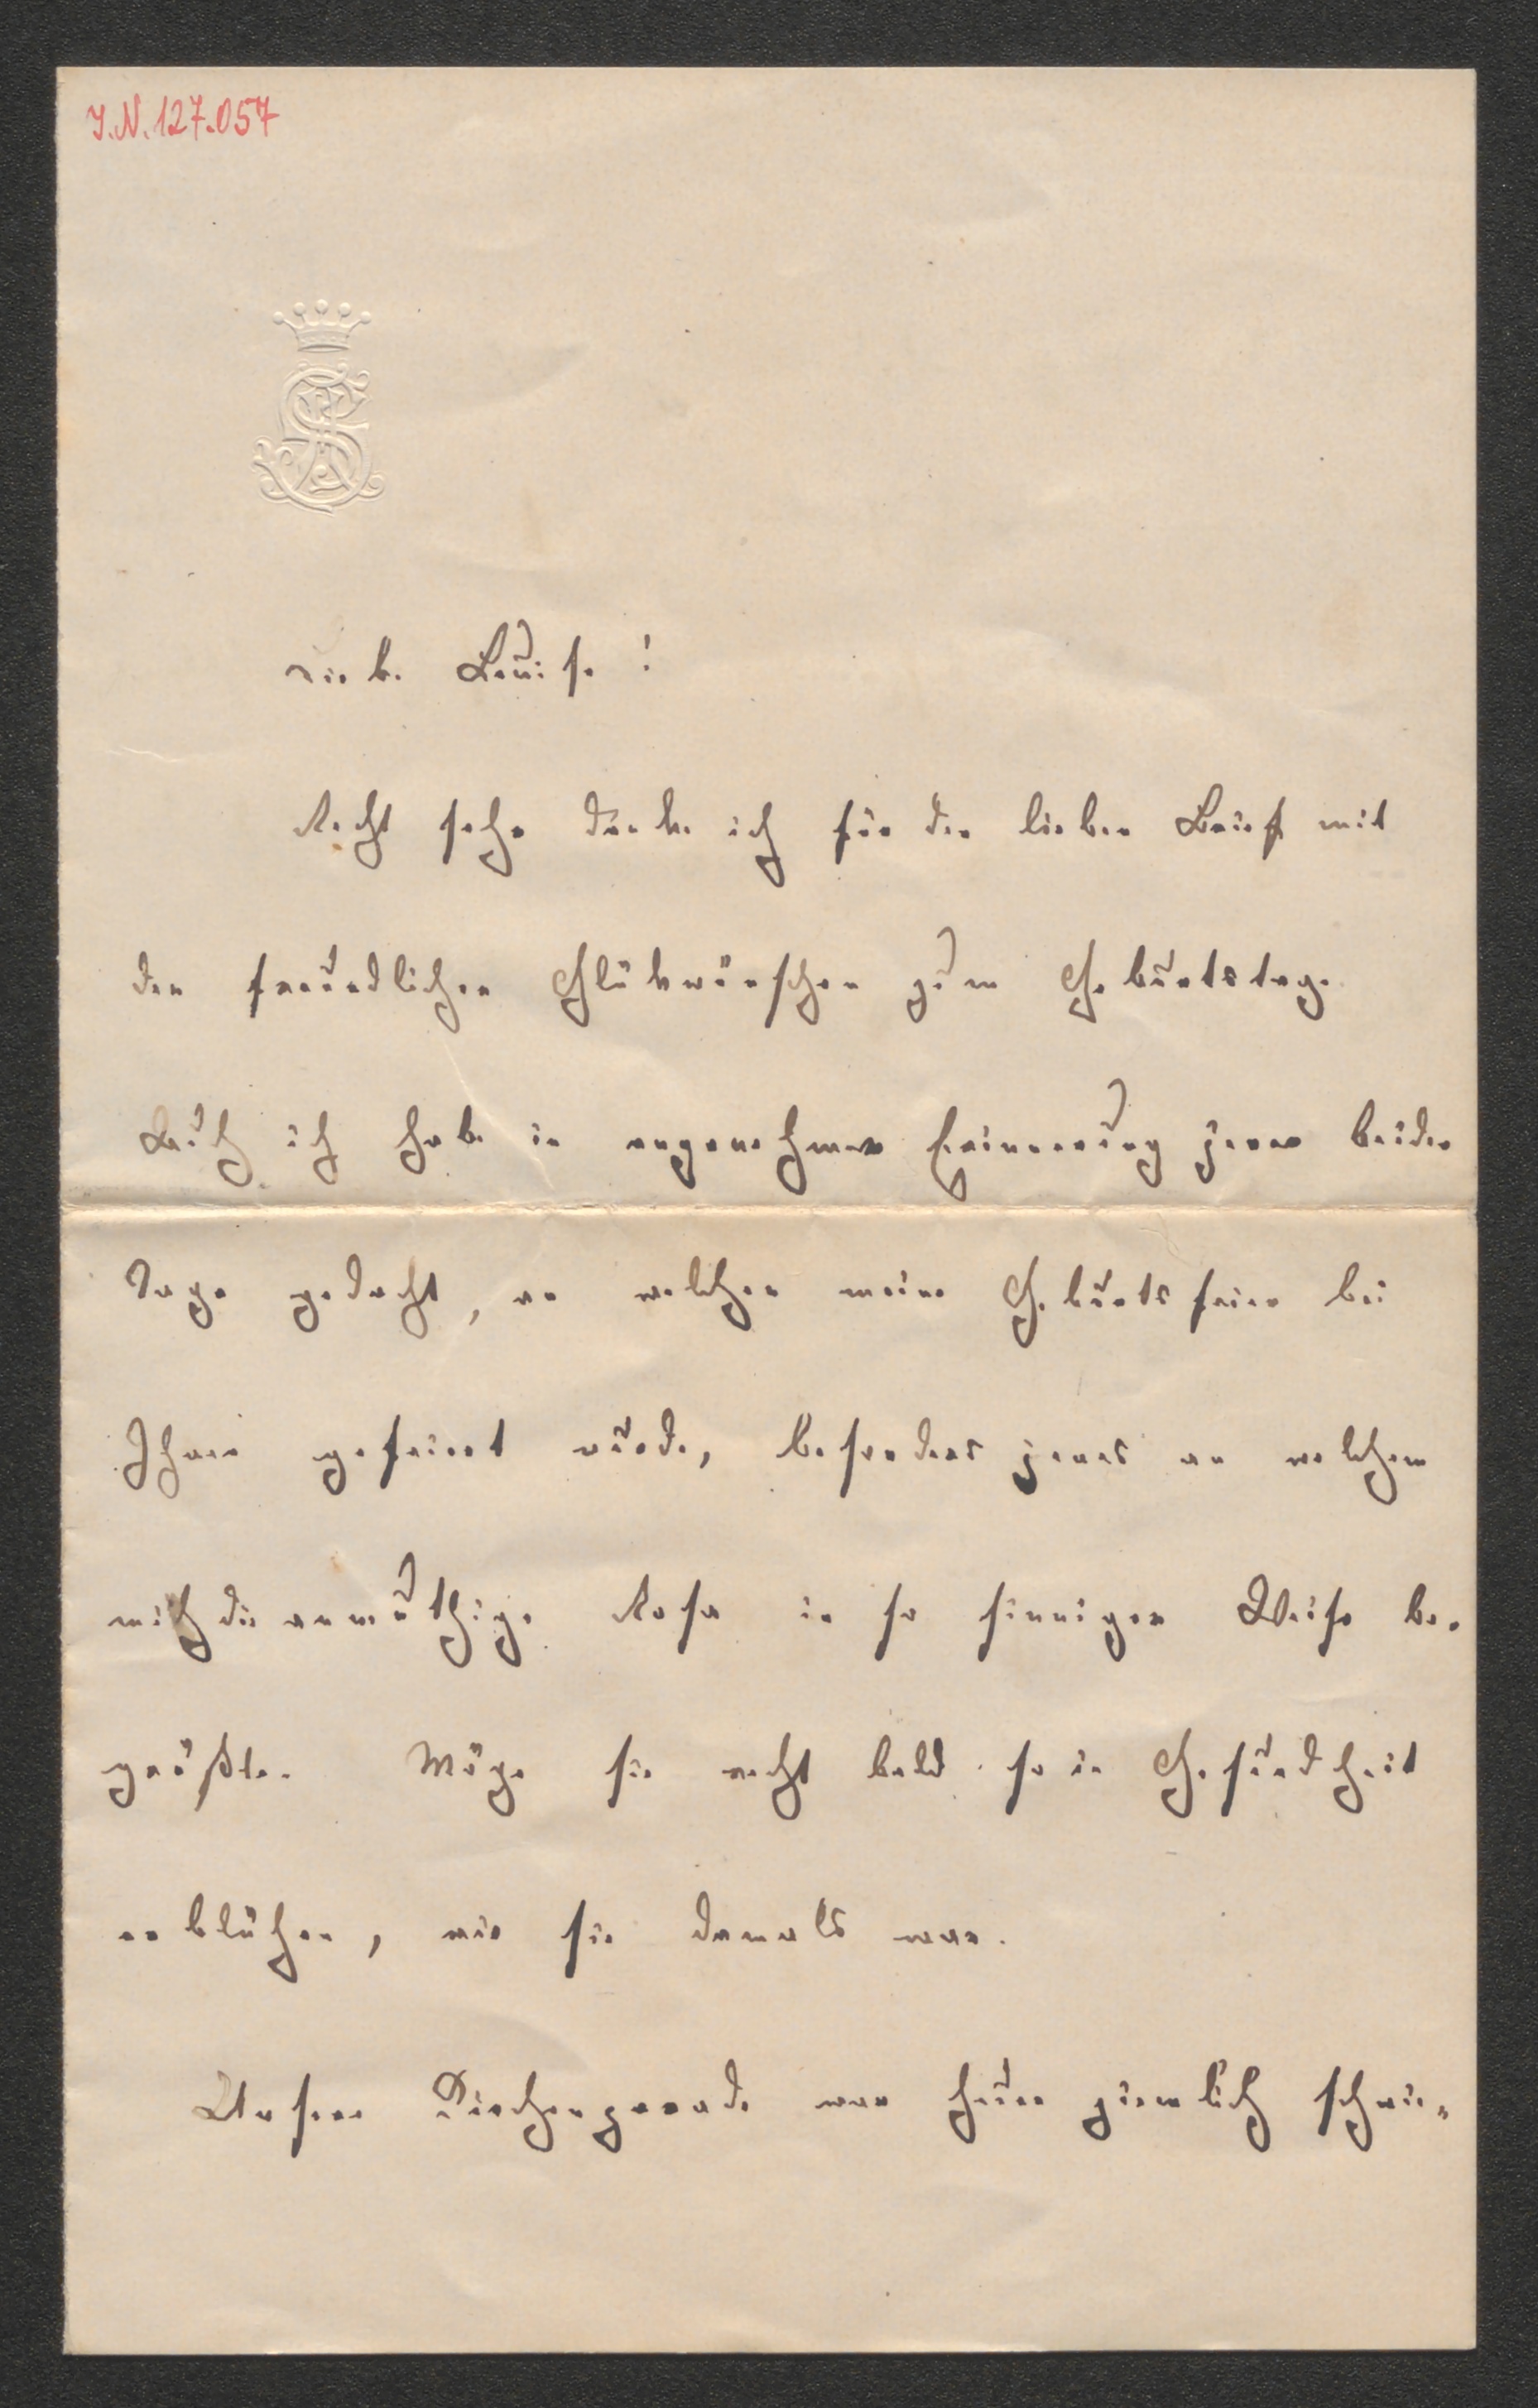 I.N. 127.057
Liebe Louise!
Recht sehr danke ich für den lieben Brief mit
den freundlichen Glükwünschen zum Geburtstage.
Auch ich habe in angenehmer Erinnerung jener beiden
Tage gedacht, an welchen meine Geburtsfeier bei
Ihnen gefeiert wurde, besonders jenes an welchem
mich die anmuthige Rosa in so sinniger Weise be-
grüßte. Möge sie recht bald so in Gesundheit
erblühen, wie sie damals war.
Unsere war heuer ziemlich schwie-